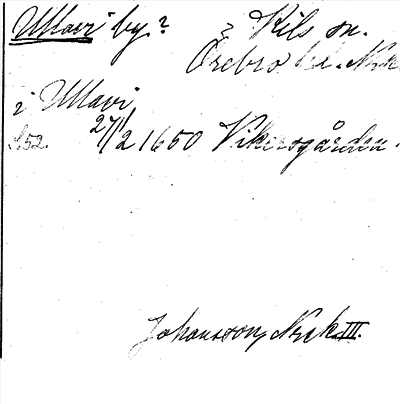 Ullavi by? i Kils sn.
Örebro hd. Nrk
i Ullavi
S52. 27/12 1650 Vikersgården.
Johansson, Nrk III.